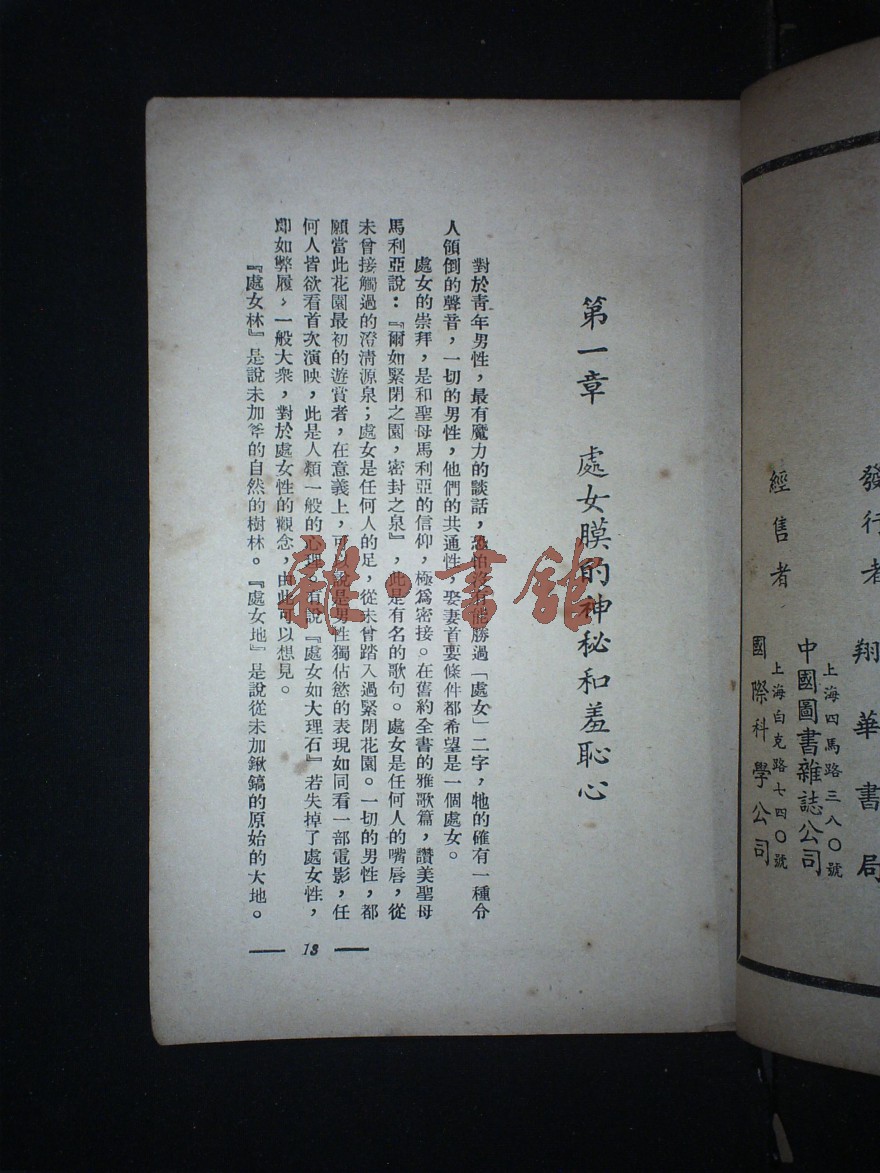 發行者 翔華書局
上海四馬路三八〇號
中國圖書雜誌公司
經售者
上海白克路七四〇號
國際科學公司
第一章 處女膜的神秘和羞恥心
對於青年男性,最有魔力的談話,恐怕沒有能勝過「處女」二字,牠的確有一種令
人傾倒的聲音,一切的男性,他們的共通性,娶妻首要條件都希望是一個處女。
處女的崇拜,是和聖母馬利亞的信仰,極爲密接。在舊約全書的雅歌篇,讚美聖母
馬利亞說:『爾如緊閉之園,密封之泉』,此是有名的歌句。處女是任何人的嘴唇,從
未曾接觸過的澄清源泉;處女是任何人的足,從未曾踏入過緊閉花園。一切的男性,都
願當此花園最初的遊賞者,在意義上,可以說是男性獨佔慾的表現如同看一部電影,任
何人皆欲看首次演映,此是人類一般的心理。有說『處女如大理石』若失掉了處女性,
即如弊履,一般大衆,對於處女性的觀念,由此可以想見。
『處女林』是說未加斧的自然的樹林。『處女地』是說從未加鍬鎬的原始的大地。
13
雜·書館